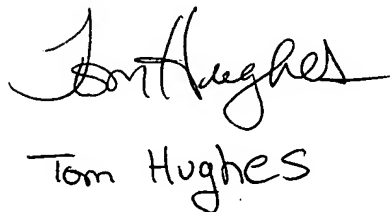 Tom Hughes
Tom Hughes